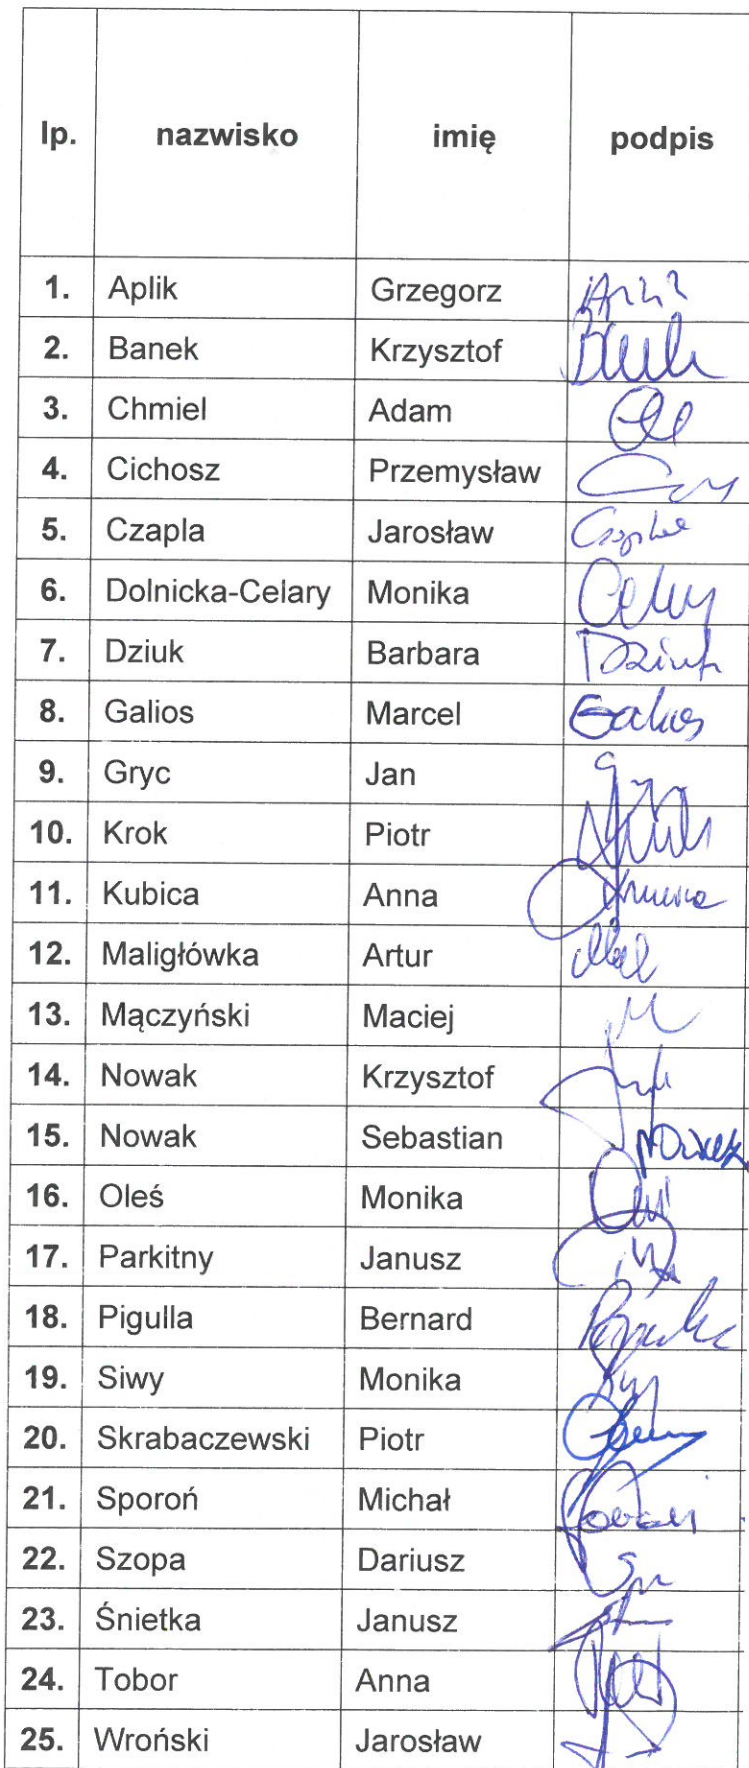 lp. nazwisko imię podpis
1. Aplik Grzegorz
2. Banek Krzysztof
3. Chmiel Adam
4. Cichosz Przemysław
5. Czapla Jarosław
6. Dolnicka-Celary Monika
7. Dziuk Barbara Dziuk
8. Galios Marcel Galios
9. Gryc Jan
10. Krok Piotr
11. Kubica Anna
12. Maligłówka Artur
13. Mączyński Maciej
14. Nowak Krzysztof
15. Nowak Sebastian Nowak
16. Oleś Monika
17. Parkitny Janusz
18. Pigulla Bernard
19. Siwy Monika
20. Skrabaczewski Piotr
21. Sporoń Michał
22. Szopa Dariusz
23. Śnietka Janusz
24. Tobor Anna
25. Wroński Jarosław